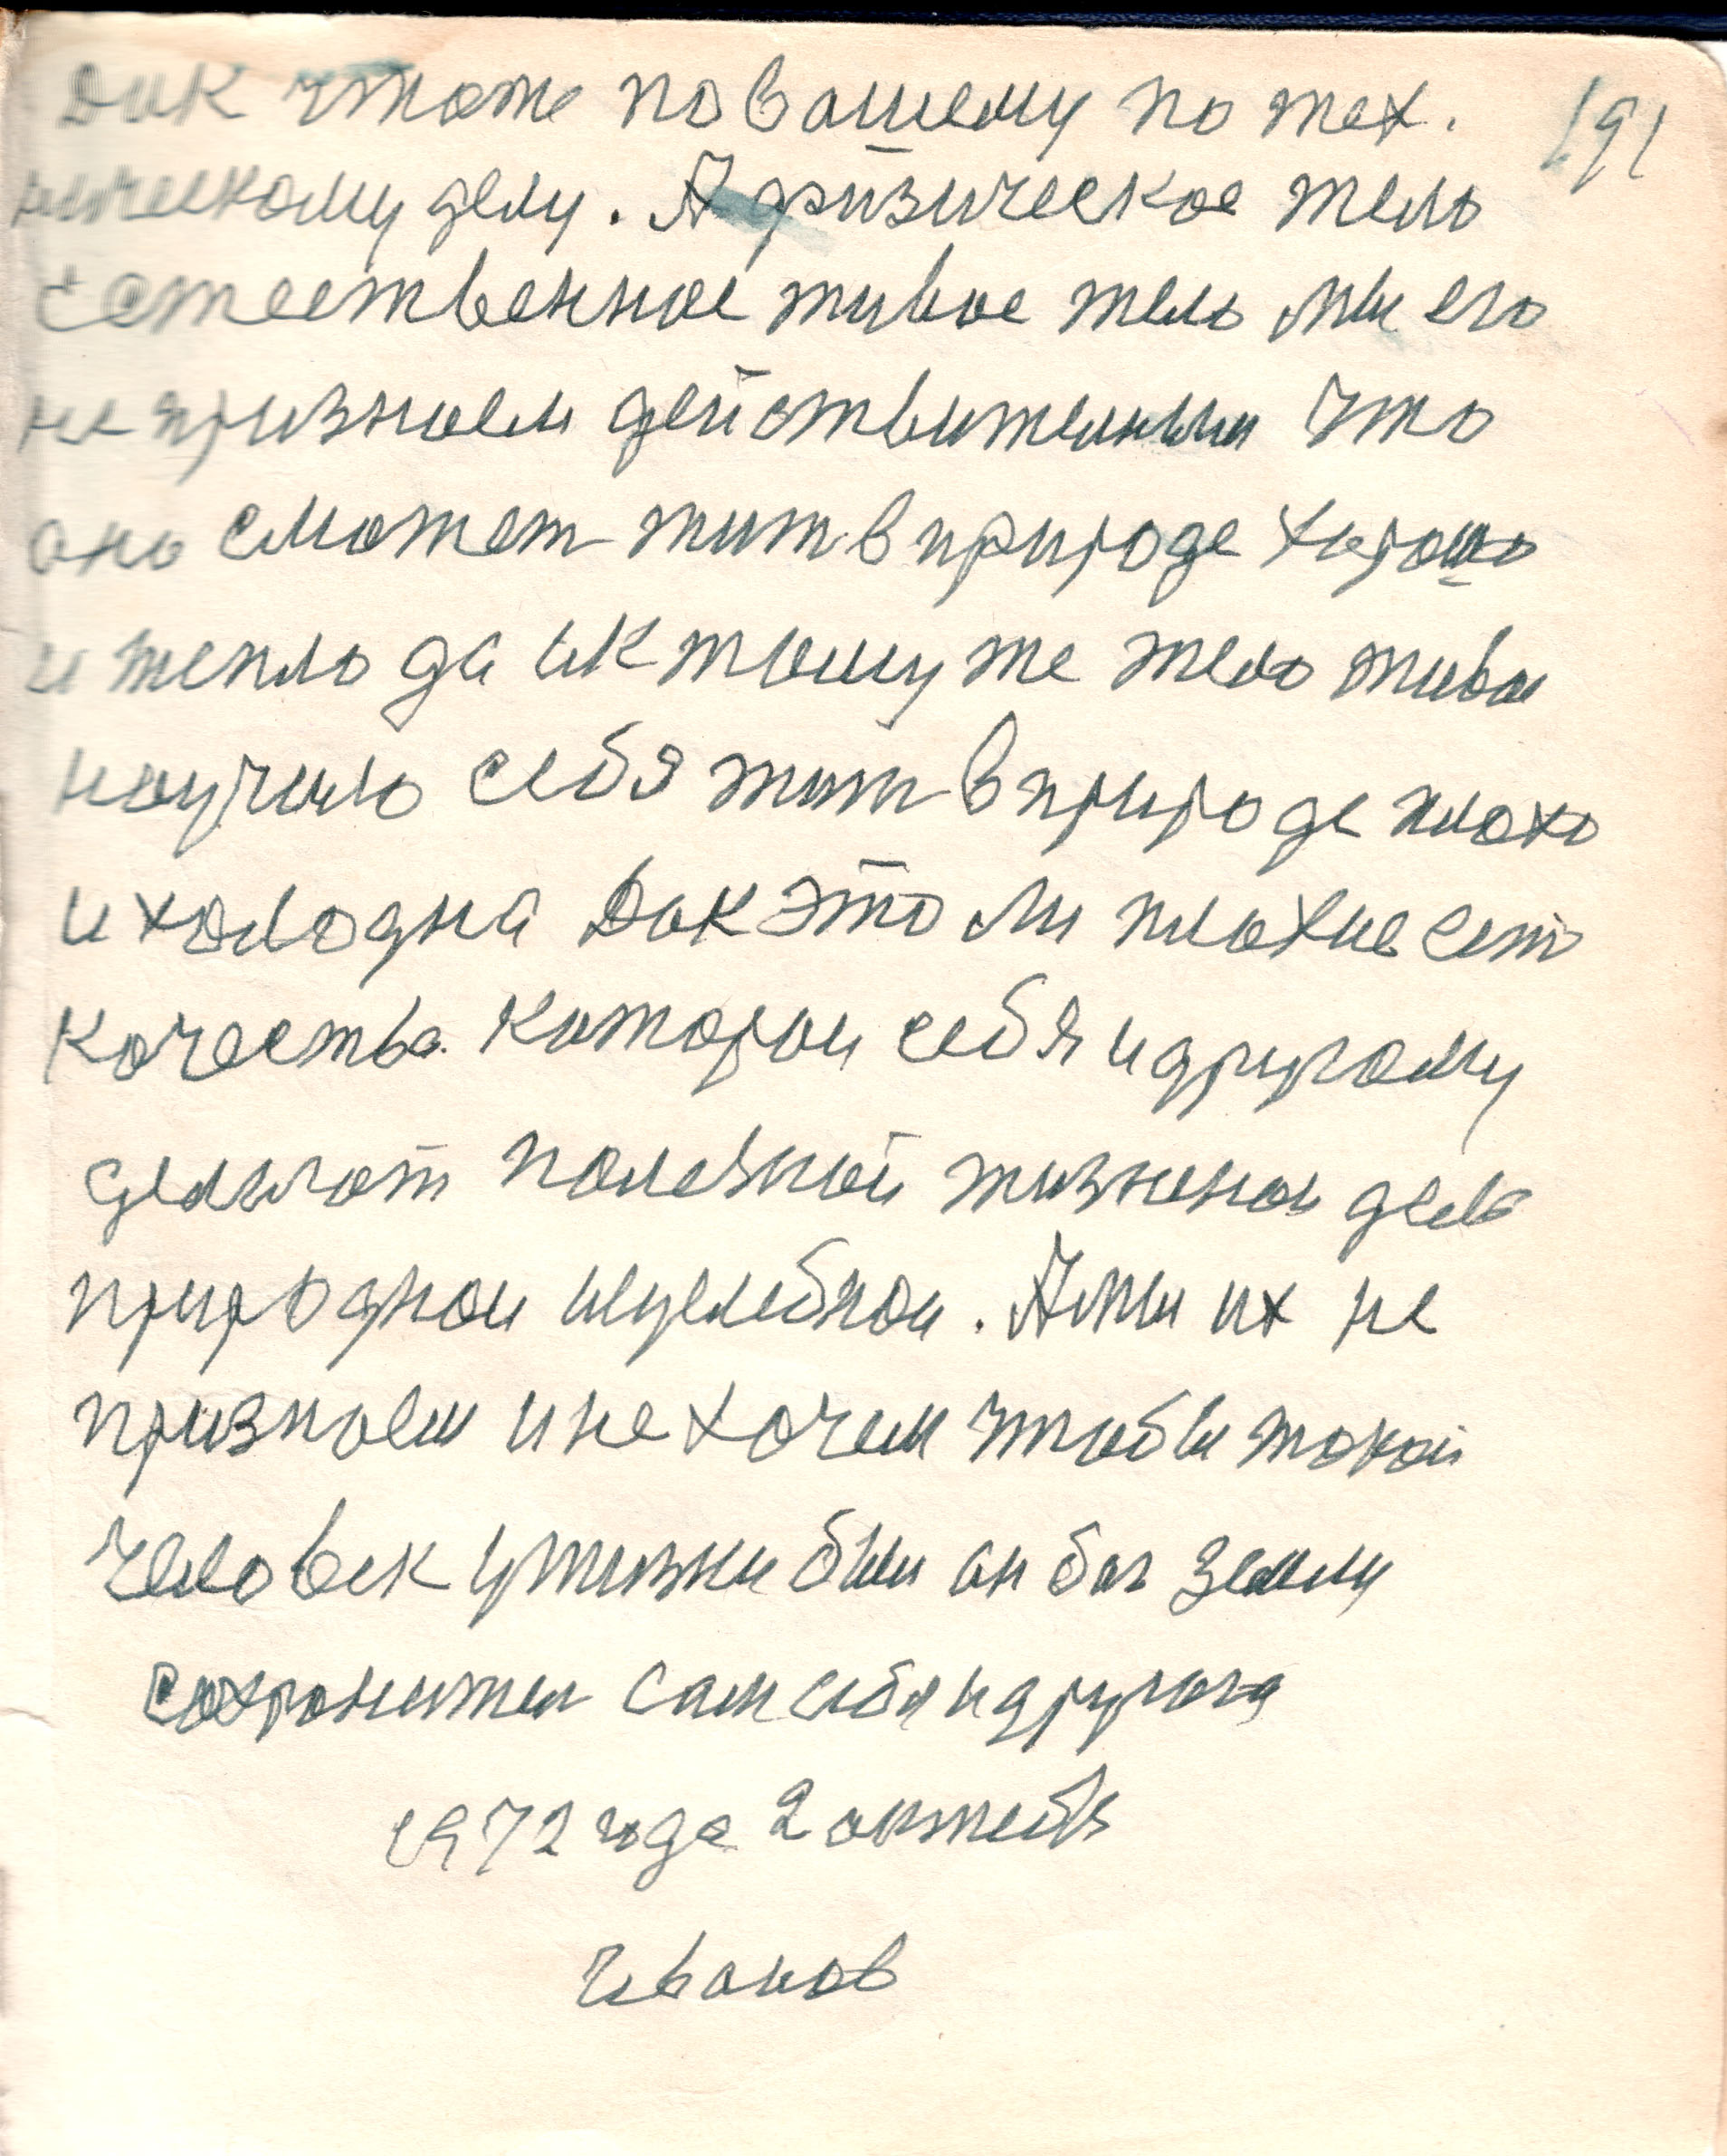 Дик чтоже по вашему по тех. 191
ническому делу. А физическое тело
Естественное живое тело мы его
не признаем действителным что
оно сможет жит в природе хорошо
и тепло да и к тому же тело живое
научило себя жит в природе плохо
и холодна Дик это ли плохие ест
качества которои себя и другому
делают полезной жизненои дела
природнои целебнои. А мы их не
признаем и не хочем чтобы такой
человек у жизни был он бог земли
сохранител сам себя и другога
1972 года 2 октебя
Иванов